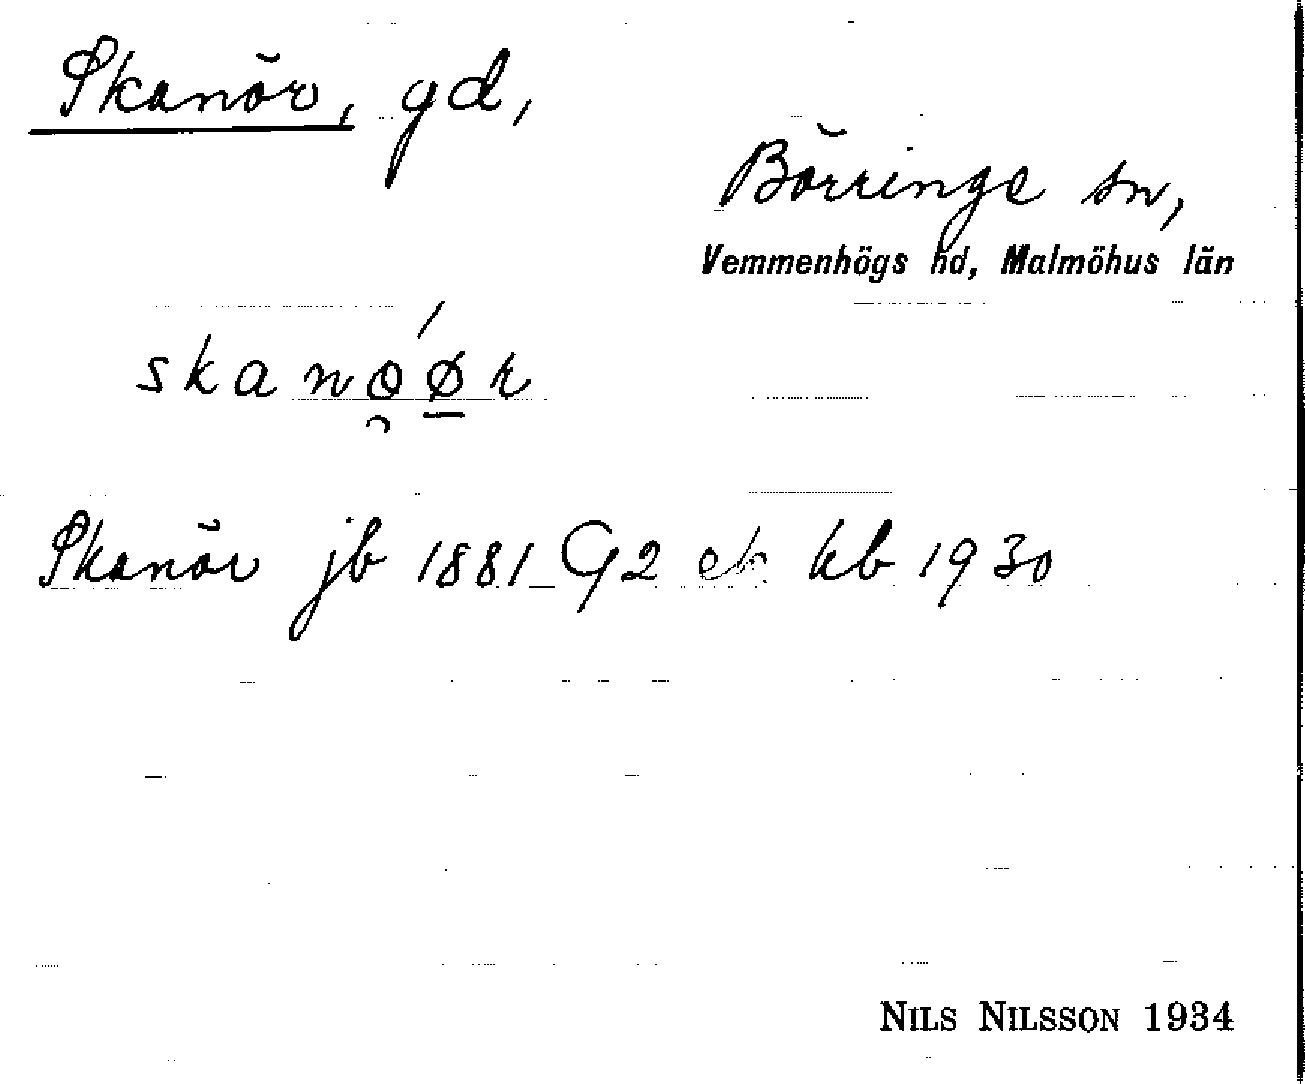 Skanör, gd,
Börringe sn,
Vemmenhögs hd, Malmöhus län
skano̯ǿ̲r
Skanör jb 1881_G2 ek kb 1930
NILS NILSSON 1934